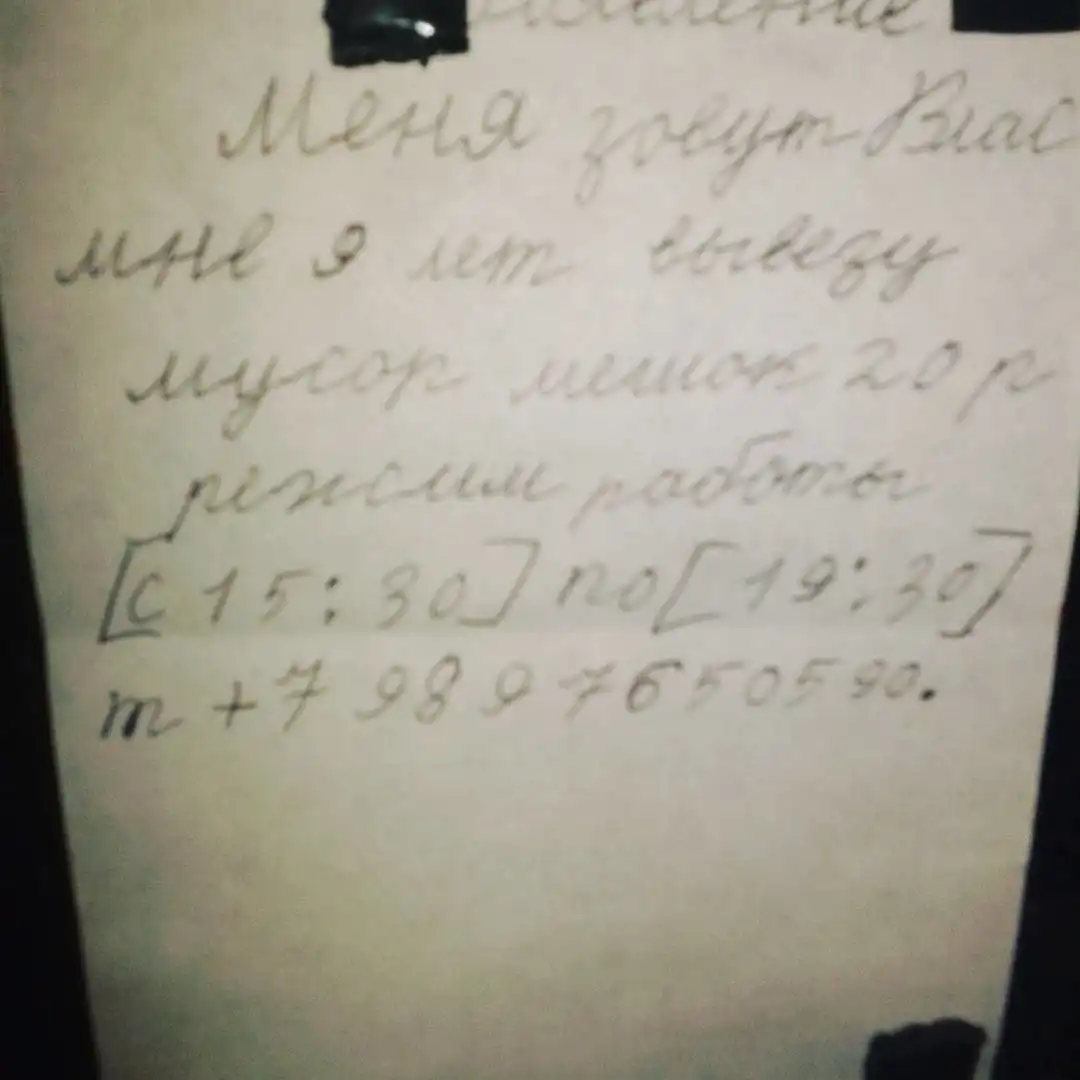 Меня зовут Влас
мне 9 лет вывезу
мусор мешок 20 р
режим работы
[с 15:30] по [19:30]
т +7 989 7650590.